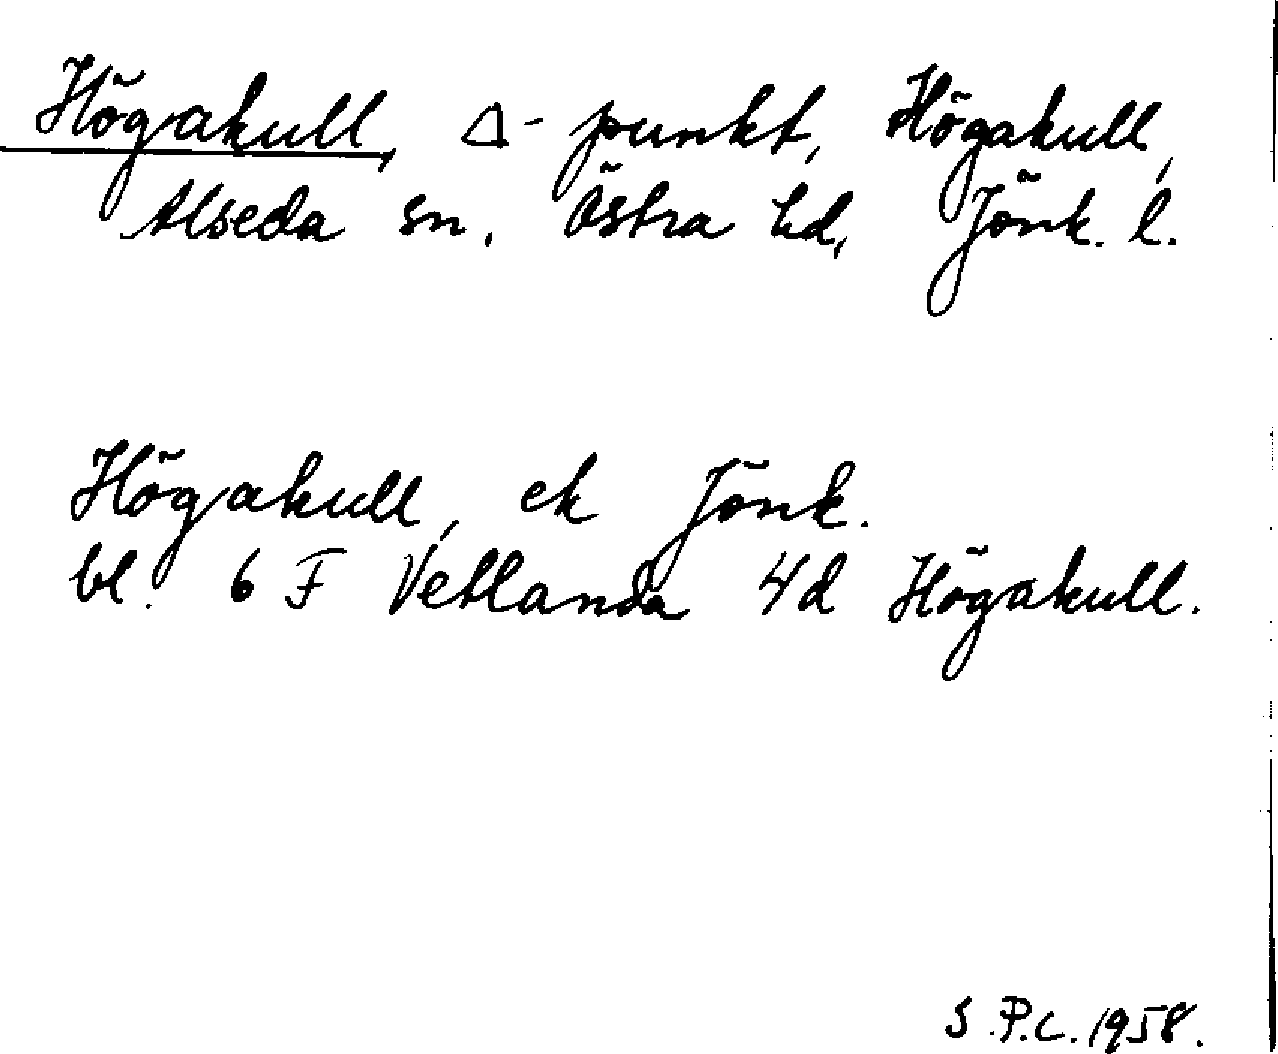 Högakull, Δ-punkt, Högakull,
Alseda sn, Östra hd, Jönk. l.
Högakull, ek Jönk.
bl. 6 F Vetlanda 4d Högakull.
S.P.C. 1958.